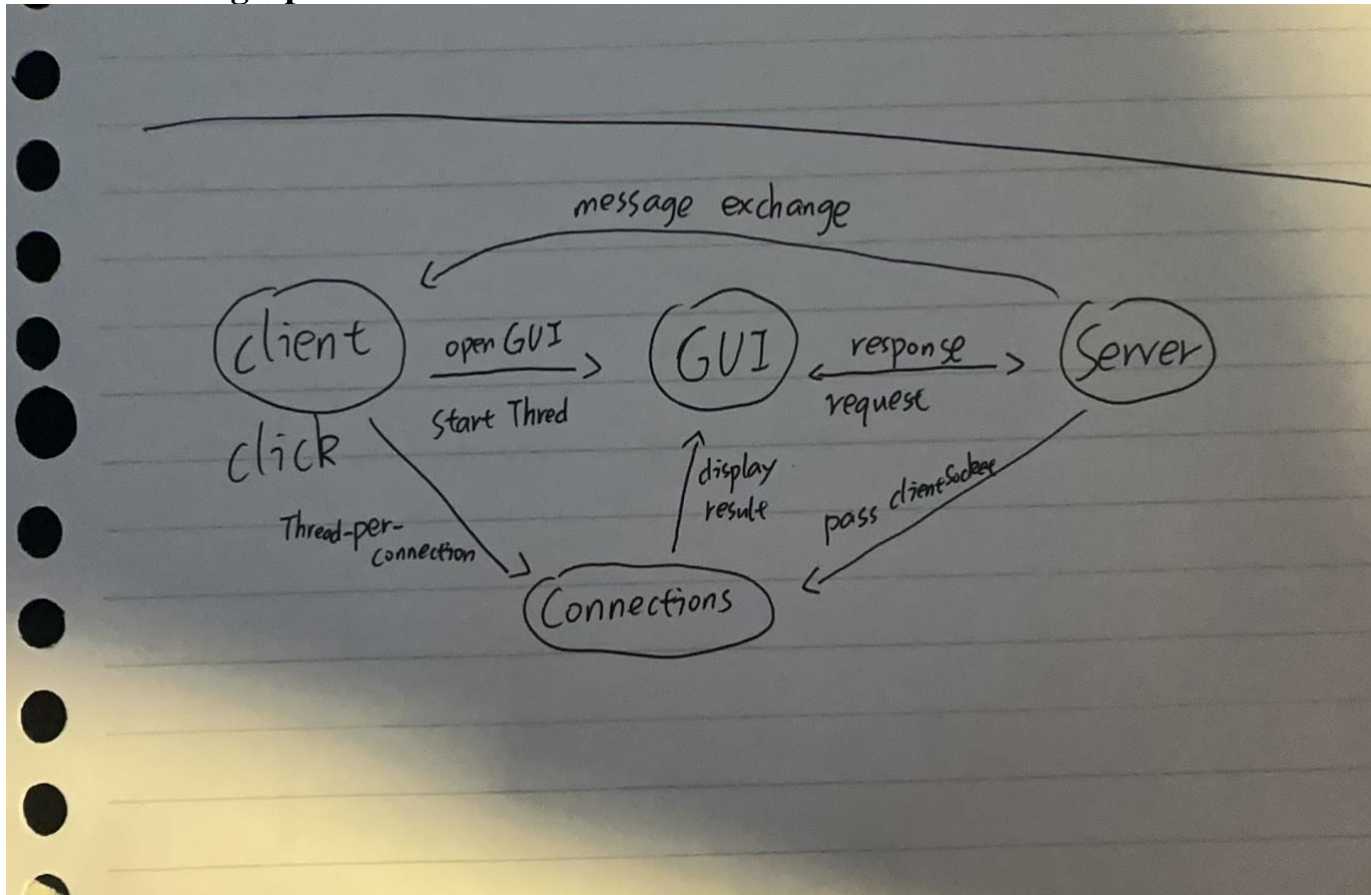 message exchange
client
open GUI
Start Thred
GUI
response
request
Server
click
Thread-per-
connection
display
result
pass clientSocket
Connections